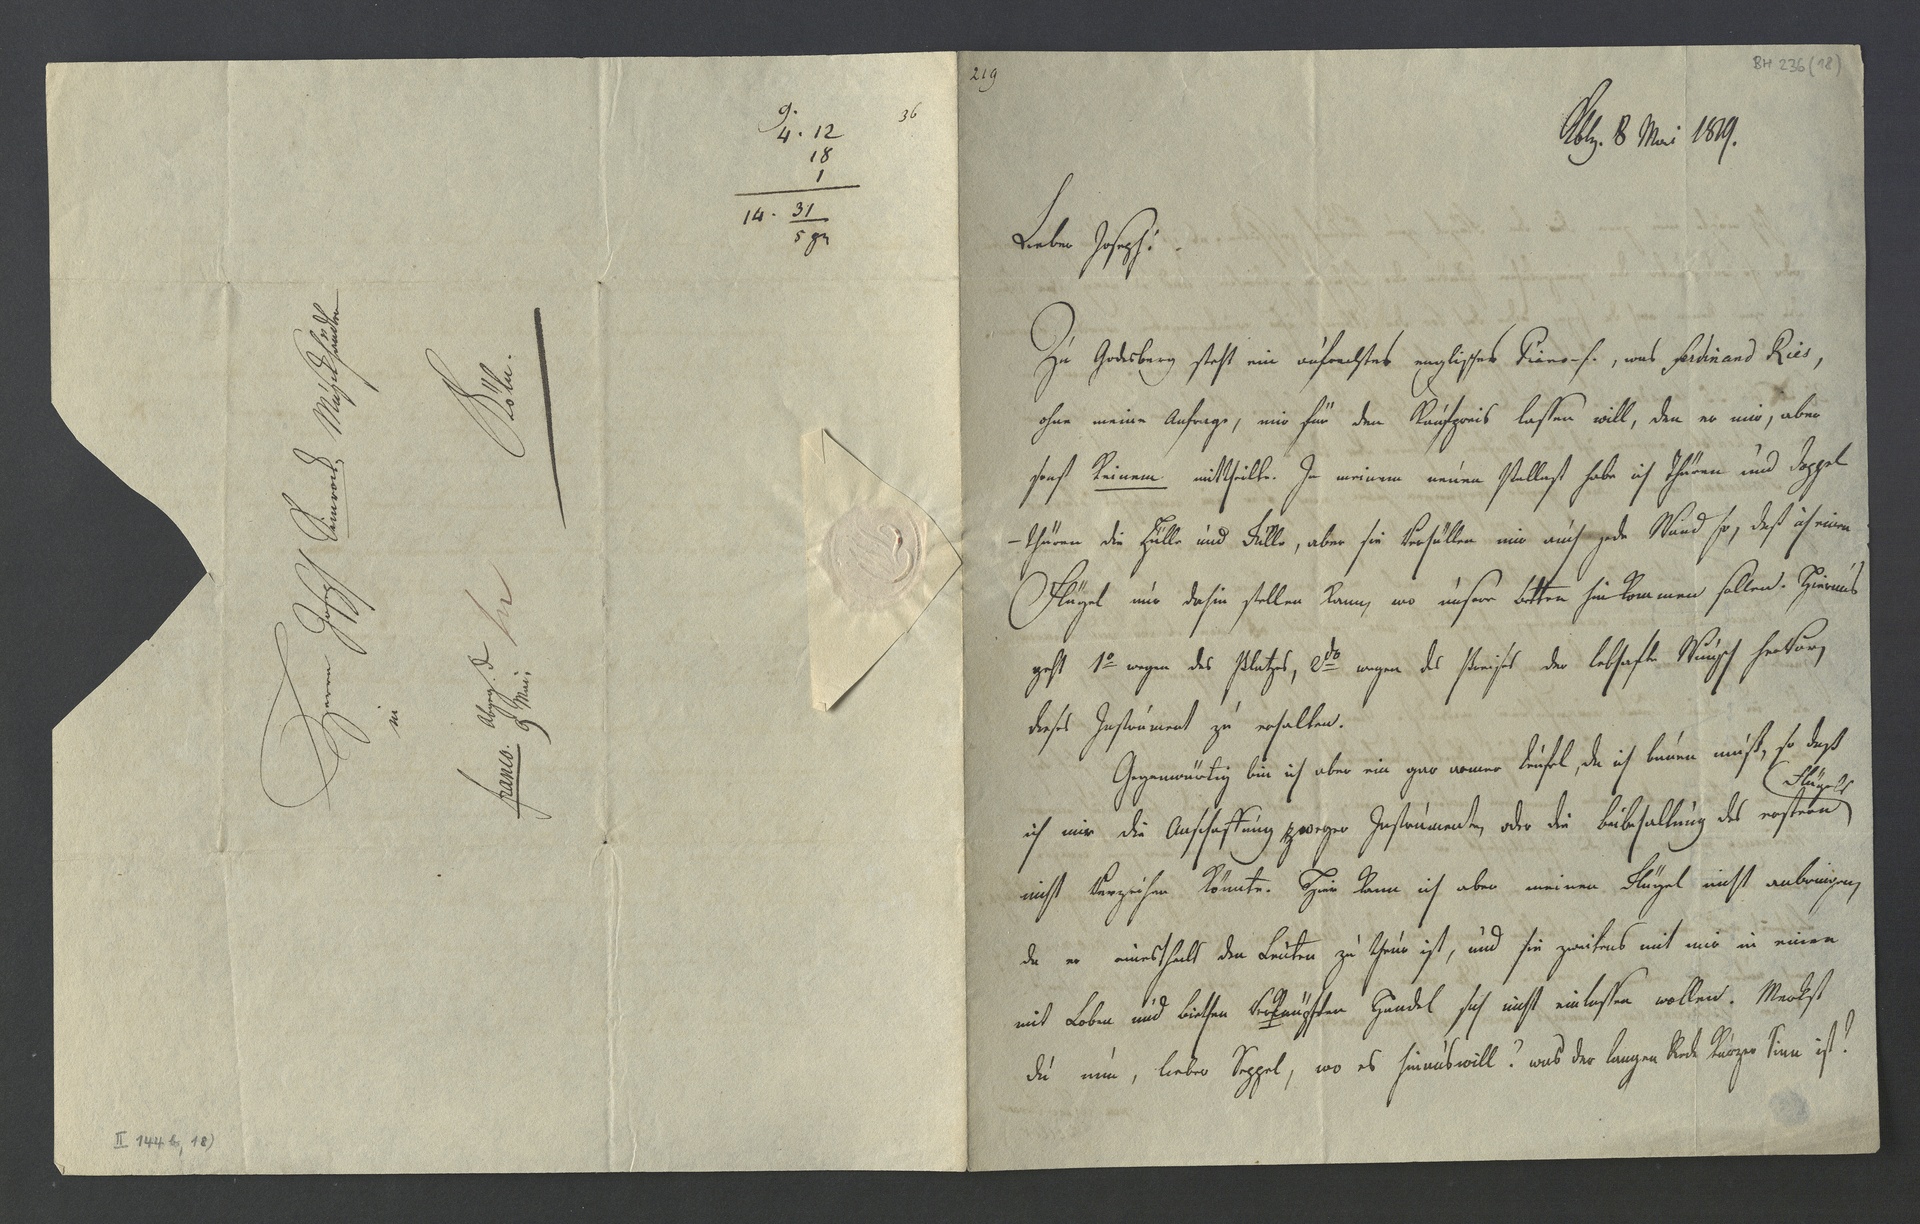 g.
4. 12
18
1
14. 31
5 gr
36
Herrn Joseph Simrock, Musikhändler
in
Köln.
franco. Abgeg. d
9 Mai.
II 144 b, 18)
219
BH 236 (18)
Cblz. 8 Mai 1829.
Lieber Joseph!
Zu Godesberg steht ein aufrechtes englisches Piano-f., was Ferdinand Ries,
ohne meine Anfrage, mir für den Kaufpreis lassen will, den er mir, aber
sonst Keinem mittheilte. In meinem neuen Pallast habe ich Thüren und Doppel
-thüren die Hülle und Fülle, aber sie verhüllen mir auch jede Wand so, daß ich einen
Flügel nur dahin stellen kann, wo unsere Betten hin kommen sollen. Hieraus
geht 1º wegen des Platzes, 2do wegen des Preises der lebhafte Wunsch hervor,
dieses Instrument zu erhalten.
Gegenwärtig bin ich aber ein gar armer Teufel, da ich bauen muß, so daß
ich mir die Anschaffung zweyer Instrumente, oder die Beibehaltung des erstern
Flügels
nicht verzeihen könnte. Hier kann ich aber meinen Flügel nicht anbringen,
da er einestheils den Leuten zu theur ist, und sie zweitens mit mir in einen
mit Loben und Biethen verknüpften Handel sich nicht einlassen wollen. Merkst
du nun, lieber Seppel, wo es hinauswill? was der langen Rede kurzer Sinn ist?